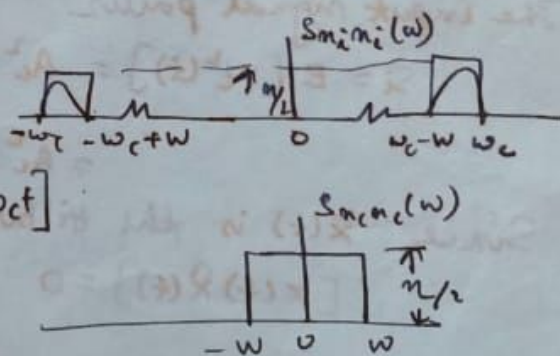 S_{n_i n_i}(ω)
η/2
-ω_c -ω_c+W 0 ω_c-W ω_c
ω_c t]
S_{n_c n_c}(ω)
η/2
-W 0 W